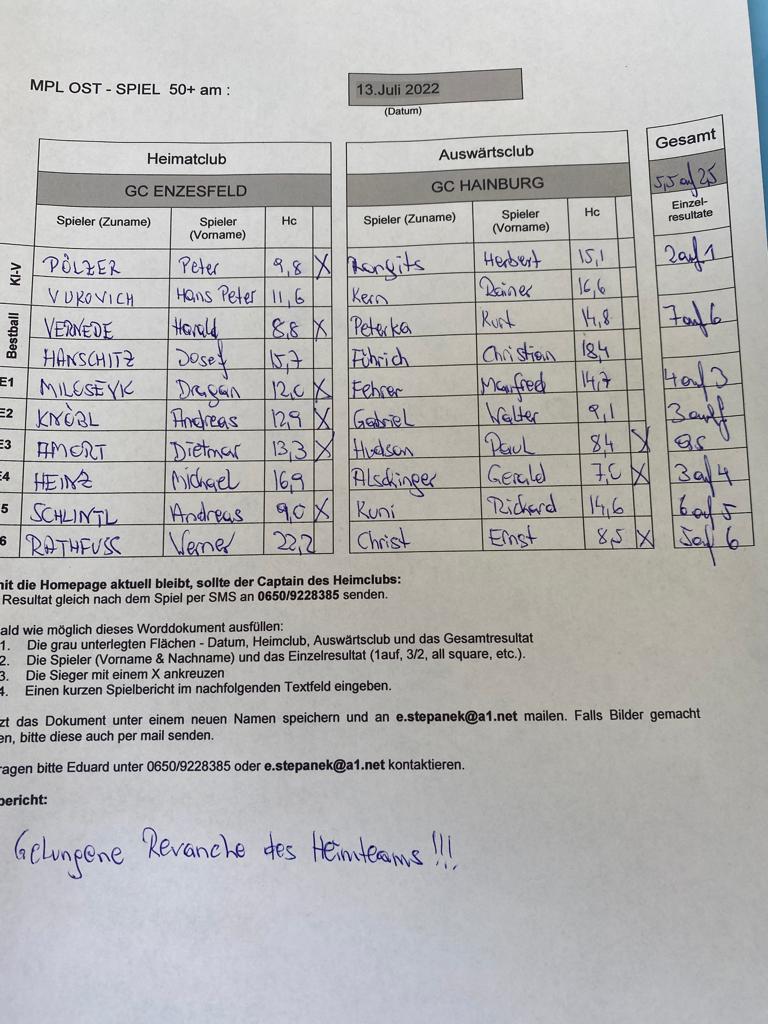 MPL OST - SPIEL 50+ am : 13.Juli 2022
(Datum)
Heimatclub Auswärtsclub Gesamt
GC ENZESFELD GC HAINBURG 5,5 auf 2,5
Spieler (Zuname) Spieler (Vorname) Hc Spieler (Zuname) Spieler (Vorname) Hc Einzel-resultate
Kl-V PÖLZER Peter 9,8 X Herbert 15,1 2 auf 1
VUKOVICH Hans Peter 11,6 Kern Rainer 16,6
Bestball VERNEDE Harald 8,8 X Peterka Kurt 14,8 7 auf 6
HANSCHITZ Josef 15,7 Führich Christian 18,4
E1 Dragan 12,0 X Fehrer Manfred 14,7 4 auf 3
E2 KNÖBL Andreas 12,9 X Gabriel Walter 9,1 3 auf
E3 AMORT Dietmar 13,3 X Hudson Paul 8,4 X as
E4 HEINZ Michael 16,9 Gerald 7,0 X 3 auf 4
5 SCHLINTL Andreas 9,0 X Kuni Richard 14,6 6 auf 5
6 RATHFUSS Werner 22,2 Christ Ernst 8,5 X 5 auf 6
mit die Homepage aktuell bleibt, sollte der Captain des Heimclubs:
Resultat gleich nach dem Spiel per SMS an 0650/9228385 senden.
ald wie möglich dieses Worddokument ausfüllen:
1. Die grau unterlegten Flächen - Datum, Heimclub, Auswärtsclub und das Gesamtresultat
2. Die Spieler (Vorname & Nachname) und das Einzelresultat (1auf, 3/2, all square, etc.).
3. Die Sieger mit einem X ankreuzen
4. Einen kurzen Spielbericht im nachfolgenden Textfeld eingeben.
zt das Dokument unter einem neuen Namen speichern und an e.stepanek@a1.net mailen. Falls Bilder gemacht
en, bitte diese auch per mail senden.
ragen bitte Eduard unter 0650/9228385 oder e.stepanek@a1.net kontaktieren.
bericht:
Gelungene Revanche des Heimteams !!!